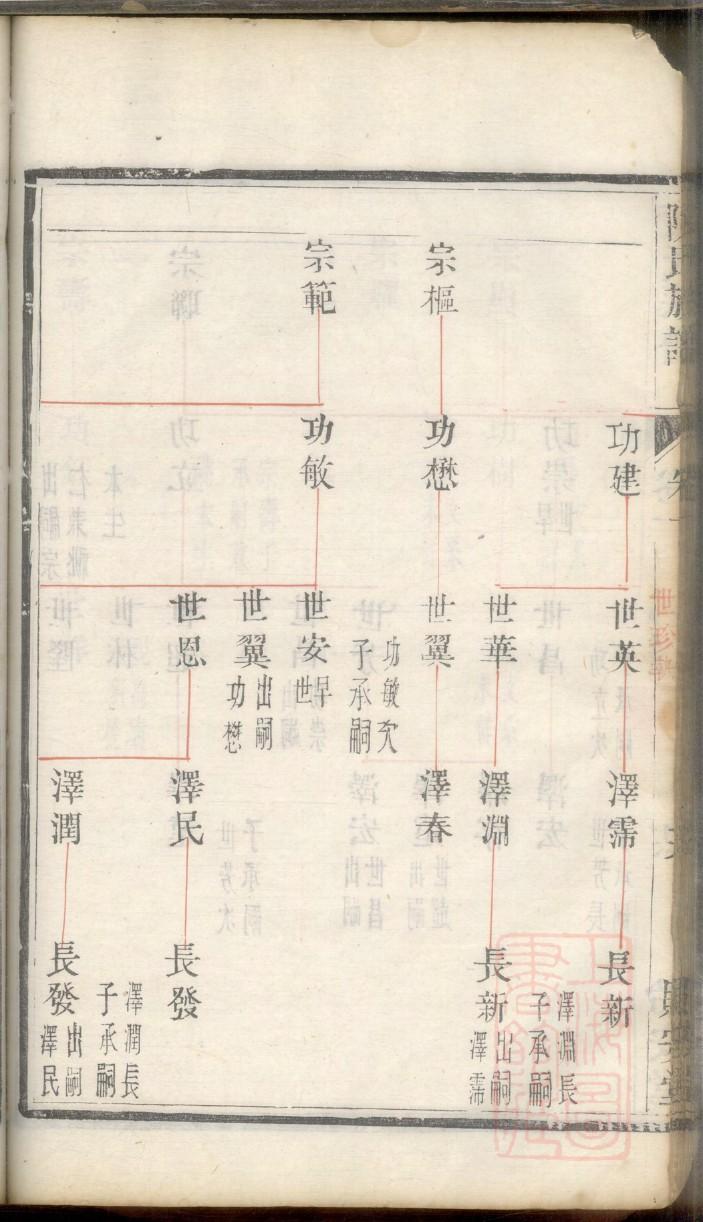 宗樞
宗範
功建
功懋
功敏
世英
世華
世翼 功敏次子承嗣
世安 早世
世翼 出嗣功懋
世恩
澤霈
澤淵
澤春
澤民
澤潤
長新 澤淵長子承嗣
長新 出嗣澤霈
長發 澤潤長子承嗣
長發 出嗣澤民